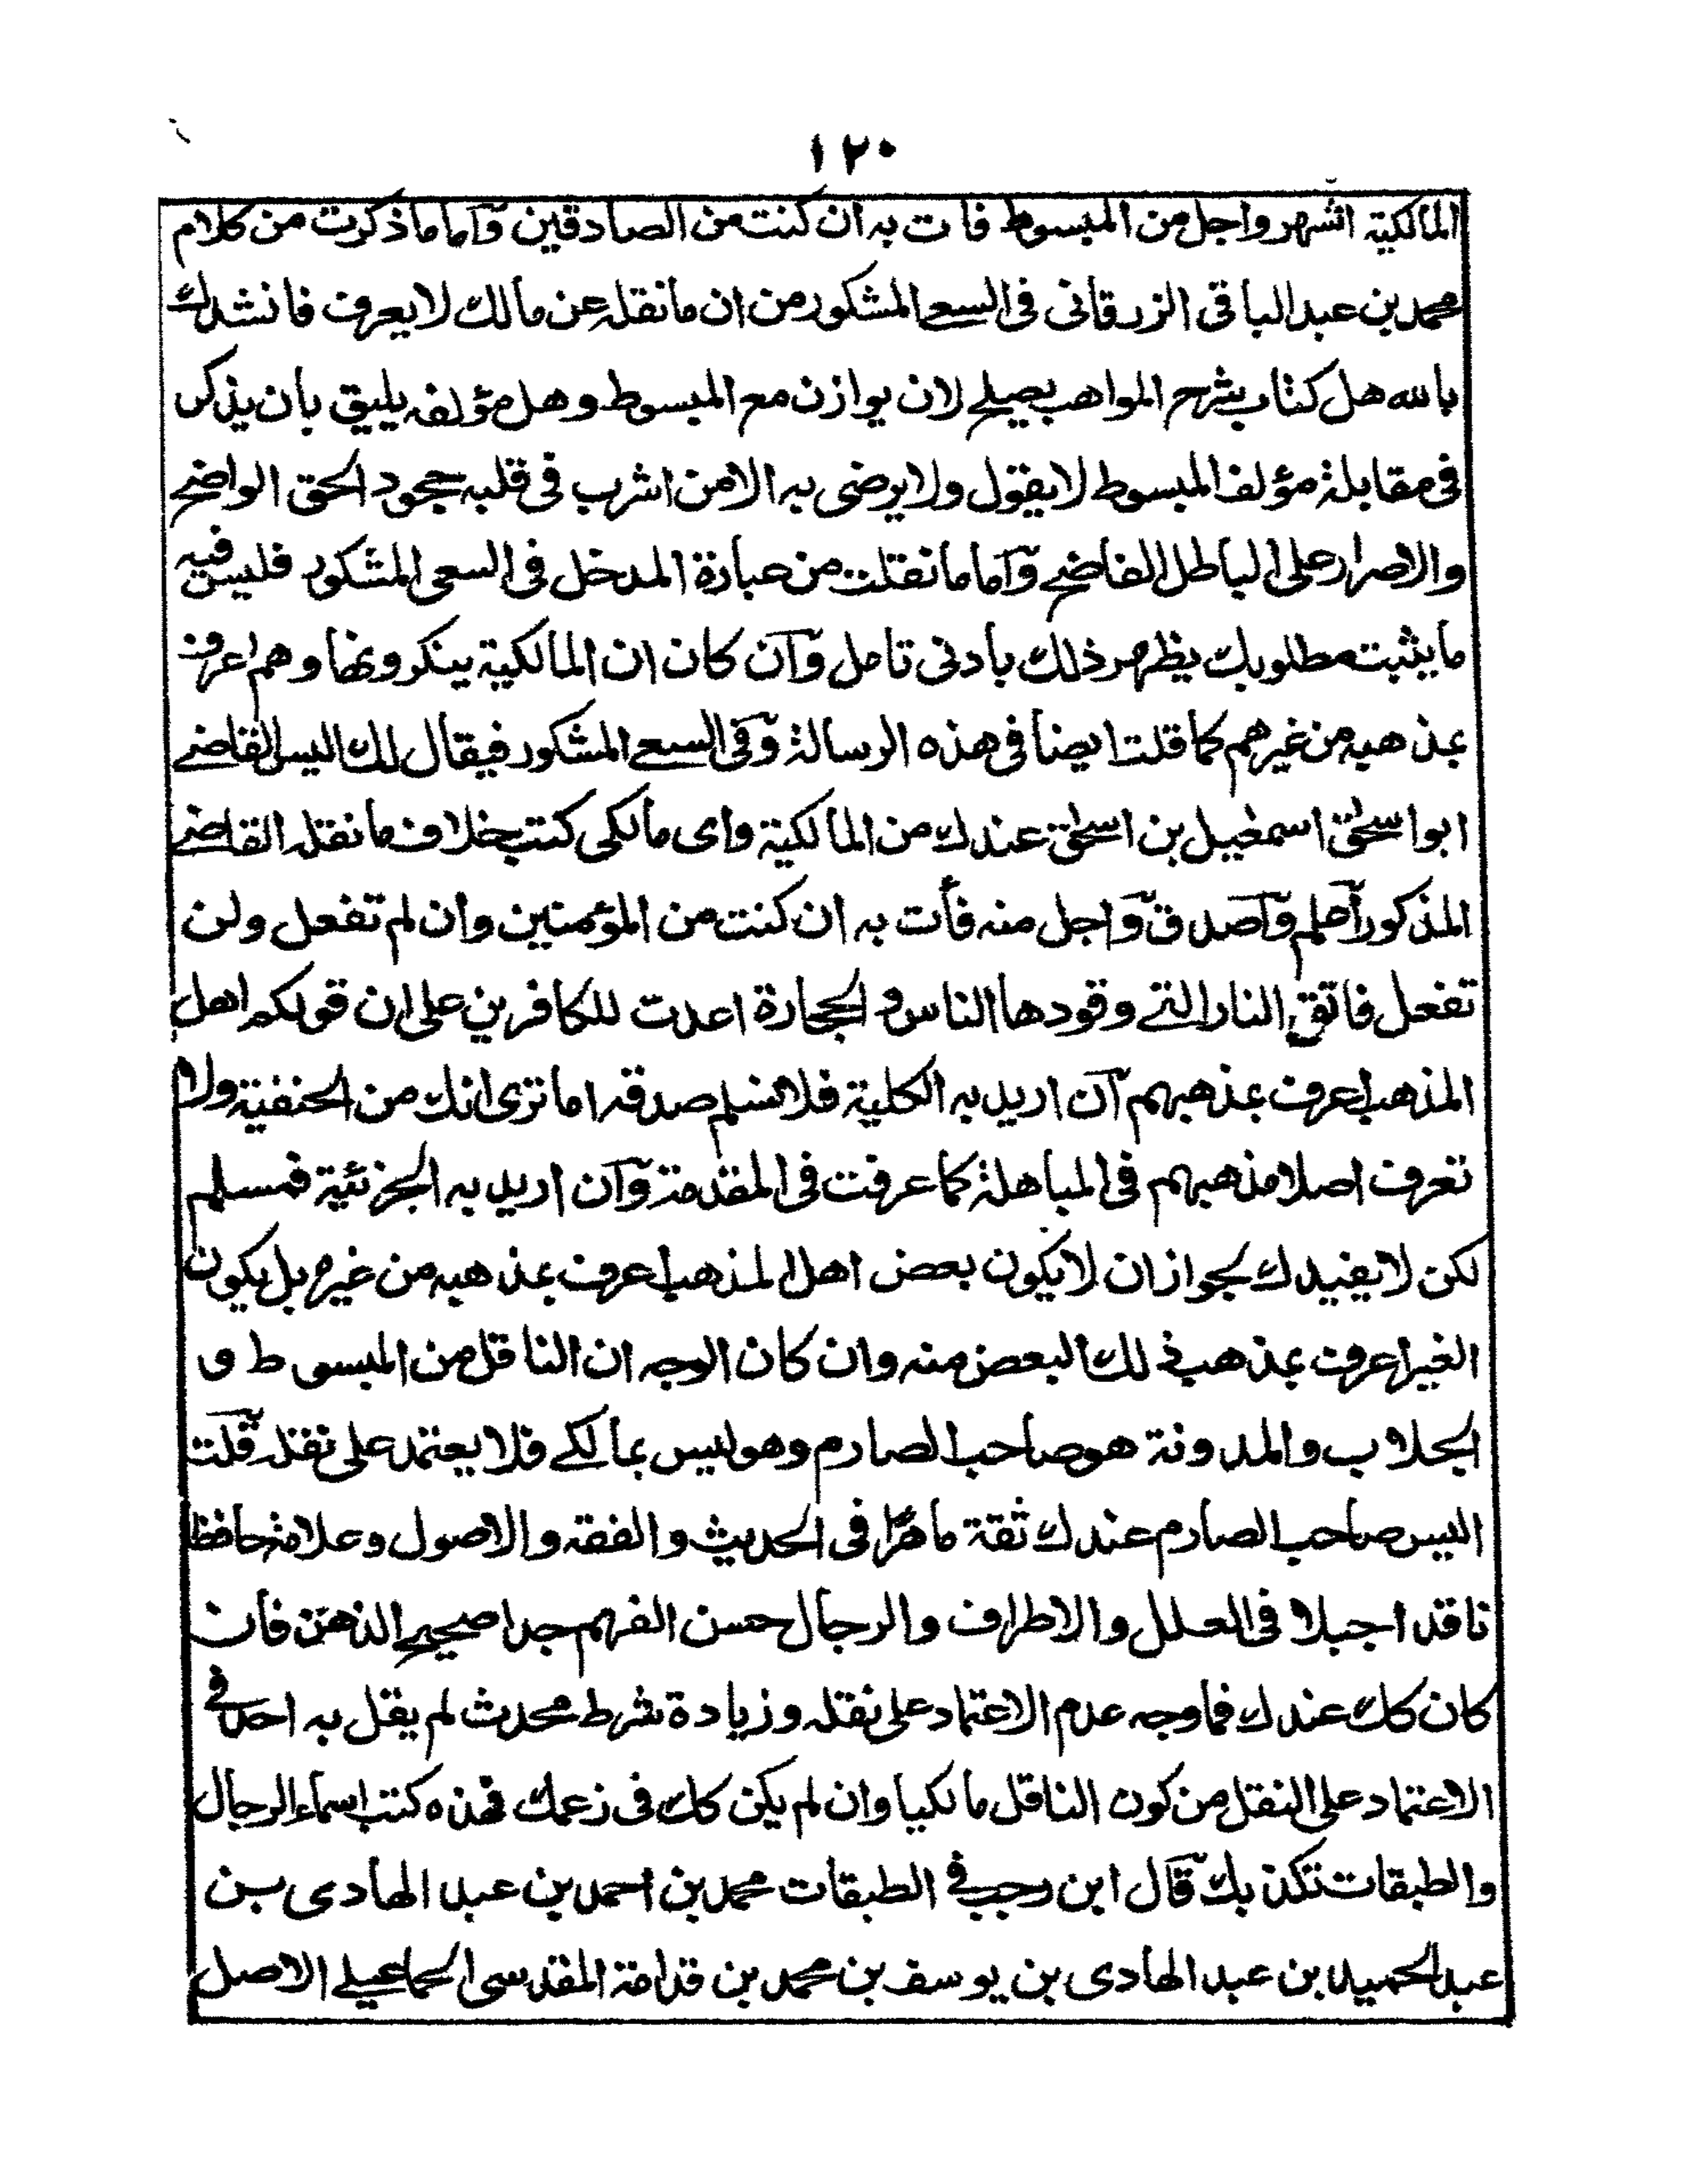 ١٢٠
المالكية اشهر واجل من المبسوط فات به ان كنت من الصادقين وآما ما ذكرت من كلام
محمد بن عبد الباقى الزرقانى فى السعى المشكور من ان ما نقله عن مالك لا يعرف فانشدك
بالله هل كتاب شرح المواهب يصلح لان يوازن مع المبسوط وهل مؤلفه يليق بان يذكر
فى مقابلة مؤلف المبسوط لا يقول ولا يرضى به الا من اشرب فى قلبه جحود الحق الواضح
والاصرار على الباطل الفاضح وآما ما نقلت من عبارة المدخل فى السعى المشكور فليس فيه
ما يثبت مطلوبك يظهر ذلك بادنى تامل وآن كان ان المالكية ينكرونها وهم اعرف
بمذهبه من غيرهم كما قلت ايضا فى هذه الرسالة وفى السعے المشكور فيقال لك اليس القاضے
ابو اسحٰق اسمٰعيل بن اسحٰق عندك من المالكية واى مالكى كتب خلاف ما نقله القاضے
المذكور أعلم وآصدق وآجل منه فأت به ان كنت من المؤمنين وان لم تفعل ولن
تفعل فاتق النار التے وقودها الناس والحجارة اعدت للكافرين على ان قولكم اهل
المذهب اعرف بمذهبهم آن اريد به الكلية فلا نسلم صدقه اما ترى انك من الحنفية ولا
تعرف اصلا مذهبهم فى المباهلة كما عرفت فى المقدمة وآن اريد به الجزئية فمسلم
لكن لا يفيدك لجواز ان لا يكون بعض اهل المذهب اعرف بمذهبه من غيره بل يكون
الغير اعرف بمذهب ذلك البعض منه وان كان الوجه ان الناقل من المبسوط و
الجلاب والمدونة هو صاحب الصارم وهو ليس بمالكے فلا يعتمد على نقله قلت
اليس صاحب الصارم عندك ثقة ماهرًا فى الحديث والفقه والاصول وعلامة حافظا
ناقدا جبلا فى العلل والاطراف والرجال حسن الفهم جدا صحيح الذهن فان
كان كك عندك فما وجه عدم الاعتماد على نقله وزيادة شرط محدث لم يقل به احد فى
الاعتماد على النقل من كون الناقل مالكيا وان لم يكن كك فى زعمك فهذه كتب اسماء الرجال
والطبقات تكذبك قآل ابن رجب فى الطبقات محمد بن احمد بن عبد الهادى بن
عبد الحميد بن عبد الهادى بن يوسف بن محمد بن قدامة المقدسى الجماعيلے الاصل